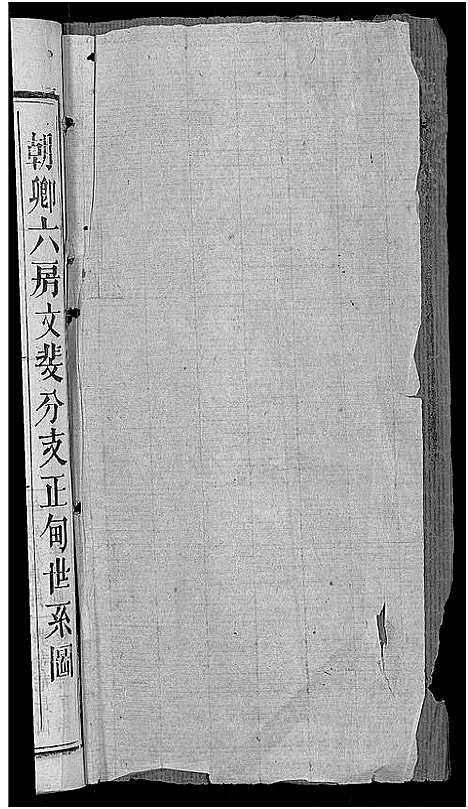 朝卿六房文斐分支正甸世系圖